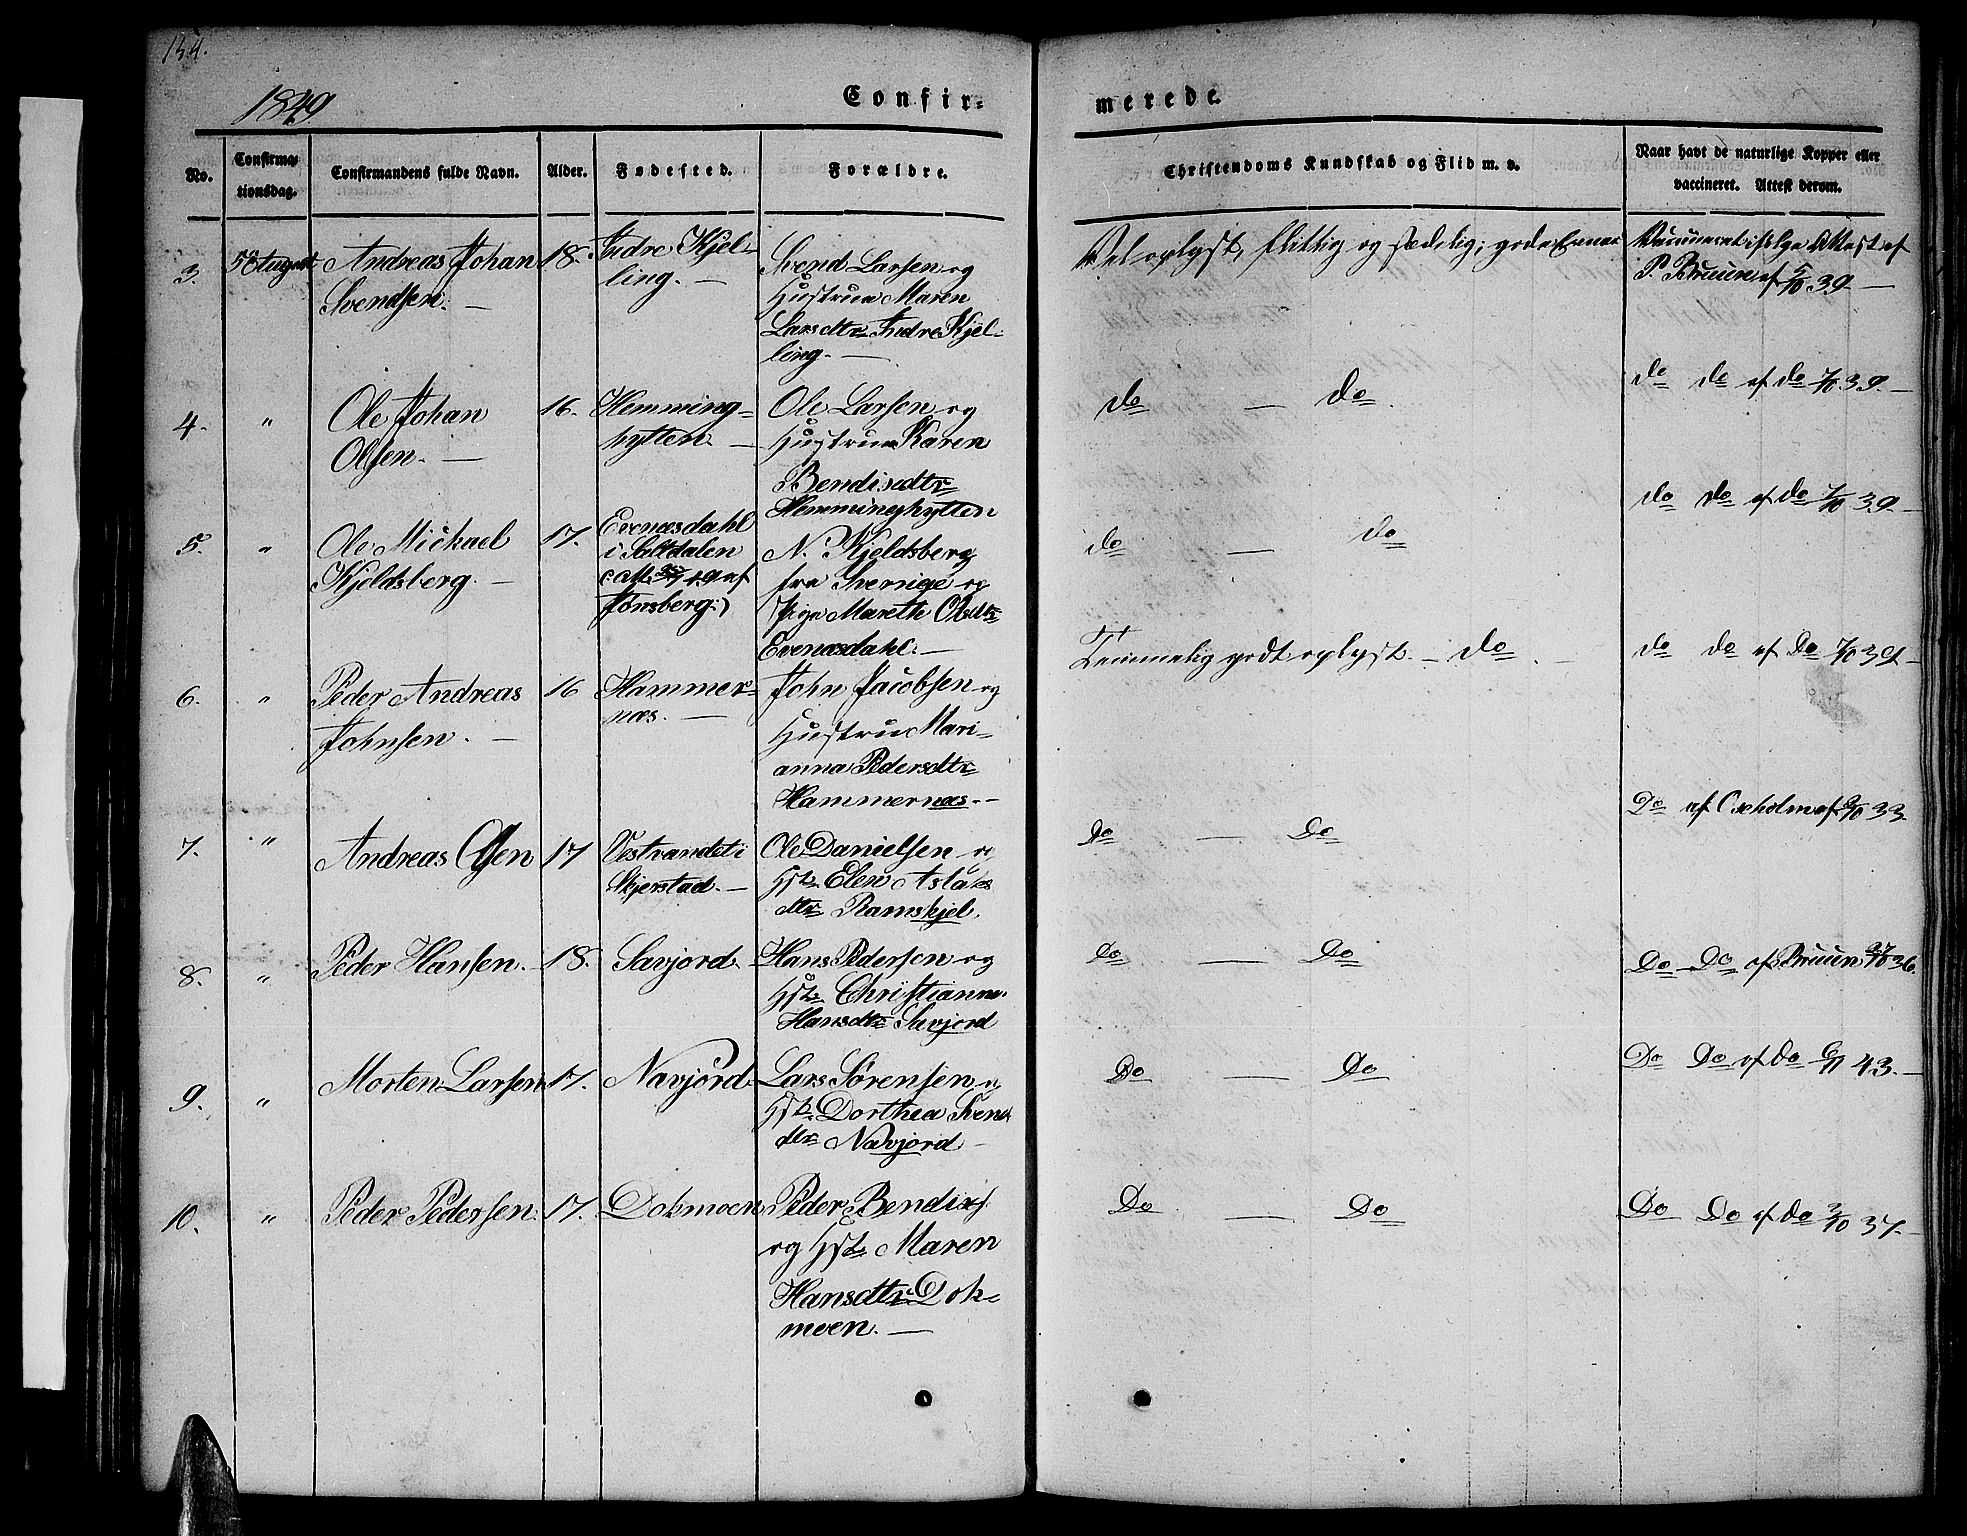 134.
1849
Confir-
merede.
No.
Confirma-
tionsdag.
Confirmandens fulde Navn.
Alder.
Fødested.
Forældre.
Christendoms Kundskab og Flid m. v.
Naar havt de naturlige Kopper eller
vaccineret. Attest derom.
3.
5 August
Andreas Johan
Svendsen. —
18.
Indre Kjel-
ling. —
Svend Larsen og
Hustrue Maren
Larsdtr Indre Kjel-
ling. —
Vel oplyst, flittig og sædelig; gode Evner
Vaccineret ifølge Attest af
P. Bruun af 5/10 39 —
4.
"
Ole Johan
Olsen. —
16.
Hemming-
hytten. —
Ole Larsen og
Hustrue Karen
Bendisdtr
Hemminghytten
do — Do.
do do af do 7/10 39. —
5.
"
Ole Mickael
Kjeldsberg. —
17.
Evenæsdahl
i Saltdalen
49 af
Tønsberg:)
N. Kjeldsberg
fra Sverrige og
Pige Mareth Olsdtr
Evenæsdahl. —
do — do
do do af do 7/10 39 —
6.
"
Peder Andreas
Johnsen. —
16
Hammer-
næs. —
John Jacobsen og
Hustrue Mari-
anna Pedersdtr
Hammernæs. -
Temmelig godt oplyst. — do. —
do do af Do 7/10 39 —
7.
"
Andreas Olsen
17
Vestrandet i
Skjerstad. —
Ole Danielsen og
Hst. Elen Aslaks
dtr Ramskjel.
Do — Do
Do af 33.
8.
"
Peder Hansen.
18.
Savjord.
Hans Pedersen og
Hst. Christianna
Hansdtr Savjord
Do — Do
Do Do af Bruun 27/10 36.
9.
"
Morten Larsen
17.
Navjord.
Lars Sørensen og
Hst. Dorthea Svens
dtr Navjord —
Do — Do
Do Do af do 6/11 43. —
10.
"
Peder Pedersen.
17.
Dokmoen
Peder Bendixs.
og Hst. Maren
Hansdtr Dok-
moen. —
Do — Do
Do Do af do 3/10 37. —